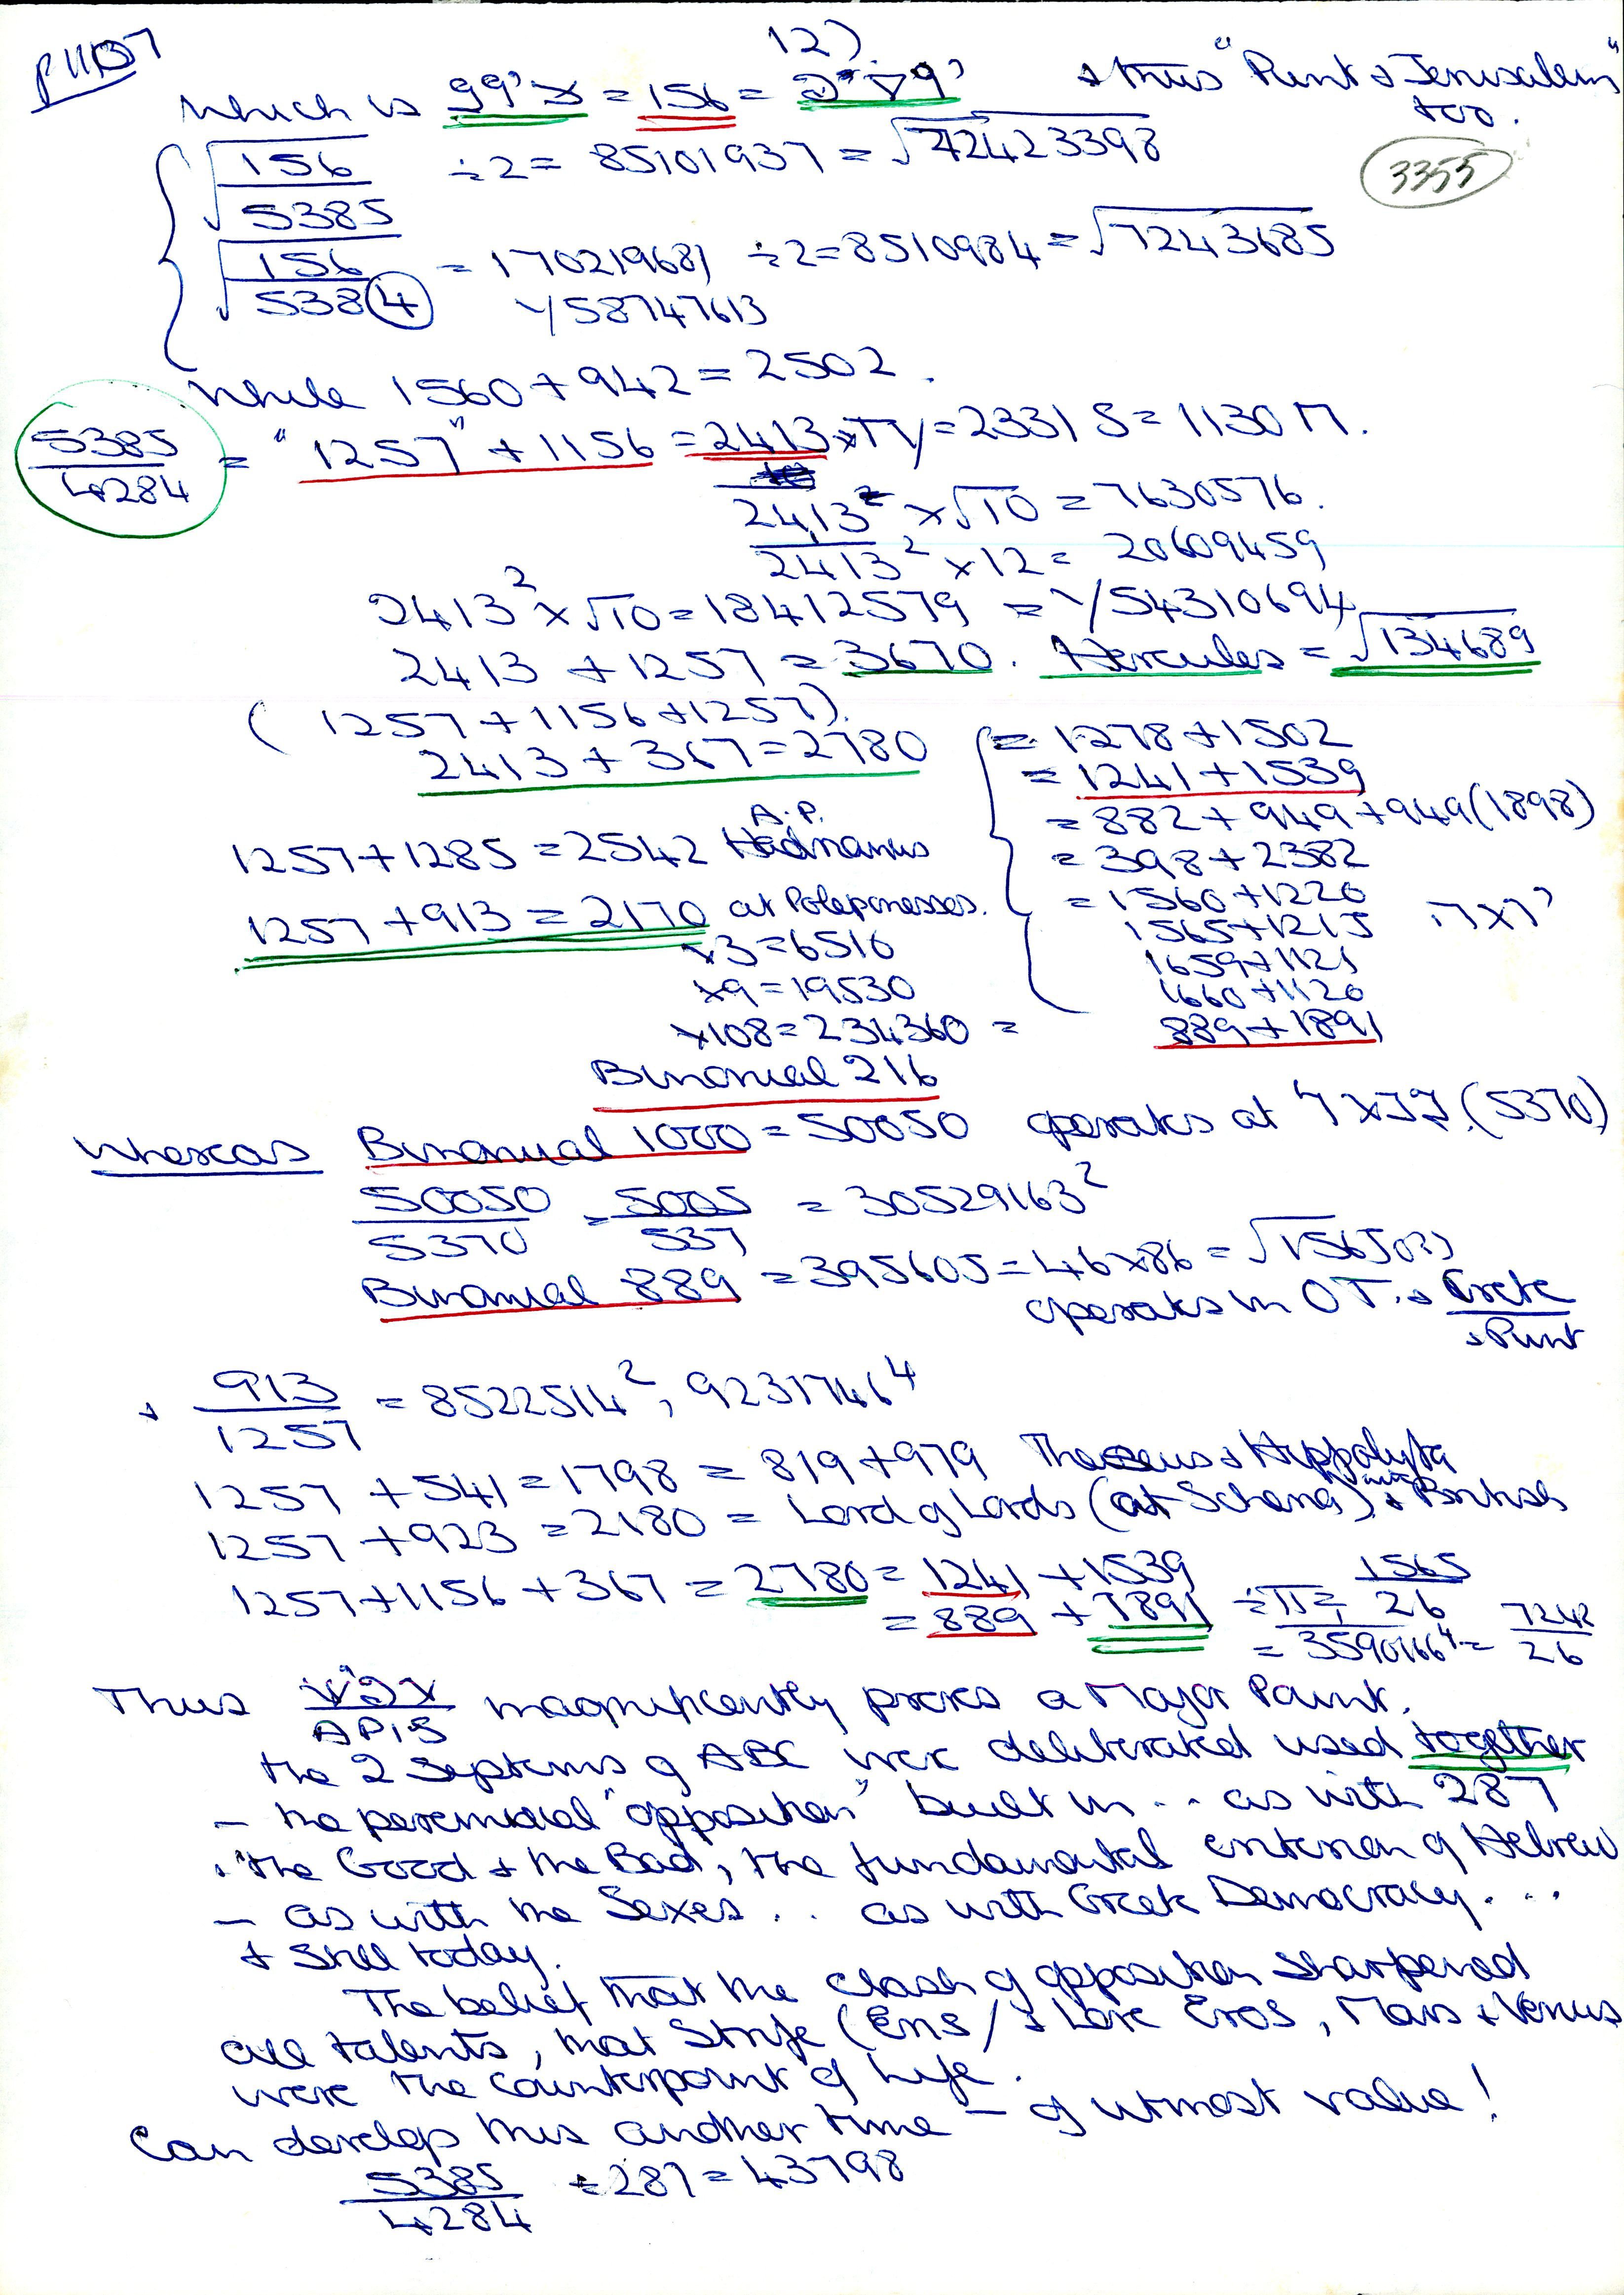 12)
Which is = 156 = & thus "Punt & Jerusalem"
too.
3355
√156/5385 ÷2= 85101937 = √72423398
√156/5384 = 170219681 ÷2=8510984=√7243685
√58747613
While 1560+942=2502.
5385/4284 = "1257" + 1156 = 2413 × = 2331 S = 1130 Π.
2413² ×√10 = 7630576.
2413² ×12 = 20609459
2413² ×√10=18412579 = √54310694
2413 +1257 = 3670. Hercules = √134689
(1257+1156+1257).
2413 + 367=2780 = 1278+1502
= 1241+1539
= 882+949+949(1898)
A.P.
1257+1285=2542 Hadrianus = 398+2382
= 1560+1220
1257 +913 = 2170 at Poleponesses. 1565+1215
×3=6510 1659+1121
×9=19530 1660+1120
×108=234360 = 889+1891
Binomial 216
Whereas Binomial 1000=50050 operates at (5370)
50050/5370 = 5005/537 = 30529163²
Binomial 889 =395605=46×86=
operates in OT. & Crete
& Punt
+ 913/1257 = 8522514², 9231746⁴
1257 +541=1798 = 819+979 Theseus & Hippolyta
1257 +923 =2180 = Lord of Lords (at ) & British
1257+1156+367 = 2780= 1241 +1539
= 889 + 1891 ÷Π= 1565/26
= 3590166⁴ = 7242/26
Thus magnificently proves a Major Point.
APIS
the 2 Septems of ABC were deliberated used together
– the perennial "opposition" built in .. as with 287
. "the Good & the Bad", the fundamental criterion of Hebrew
– as with the Sexes .. as with Greek Democracy...
& Still today.
The belief that the clash of opposition sharpened
all talents, that Strife (Eris / & Love Eros, Mars & Venus
were the counterpoint of Life.
Can develop this another time – of utmost value!
5385/4284 ÷287=43798